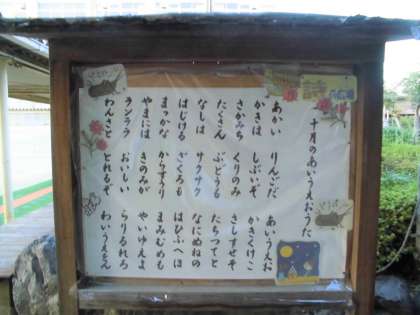 詩
十月のあいうえおうた
あかい　りんごだ　あいうえお
かきは　しぶいぞ　かきくけこ
さかみち　くりのみ　さしすせそ
たくさん　ぶどうも　たちつてと
なしは　サクサク　なにぬねの
はじける　ざくろも　はひふへほ
まっかな　からすうり　まみむめも
やまには　きのみが　やいゆえよ
ランララ　おいしい　らりるれろ
わんさと　とれるぞ　わいうえをん